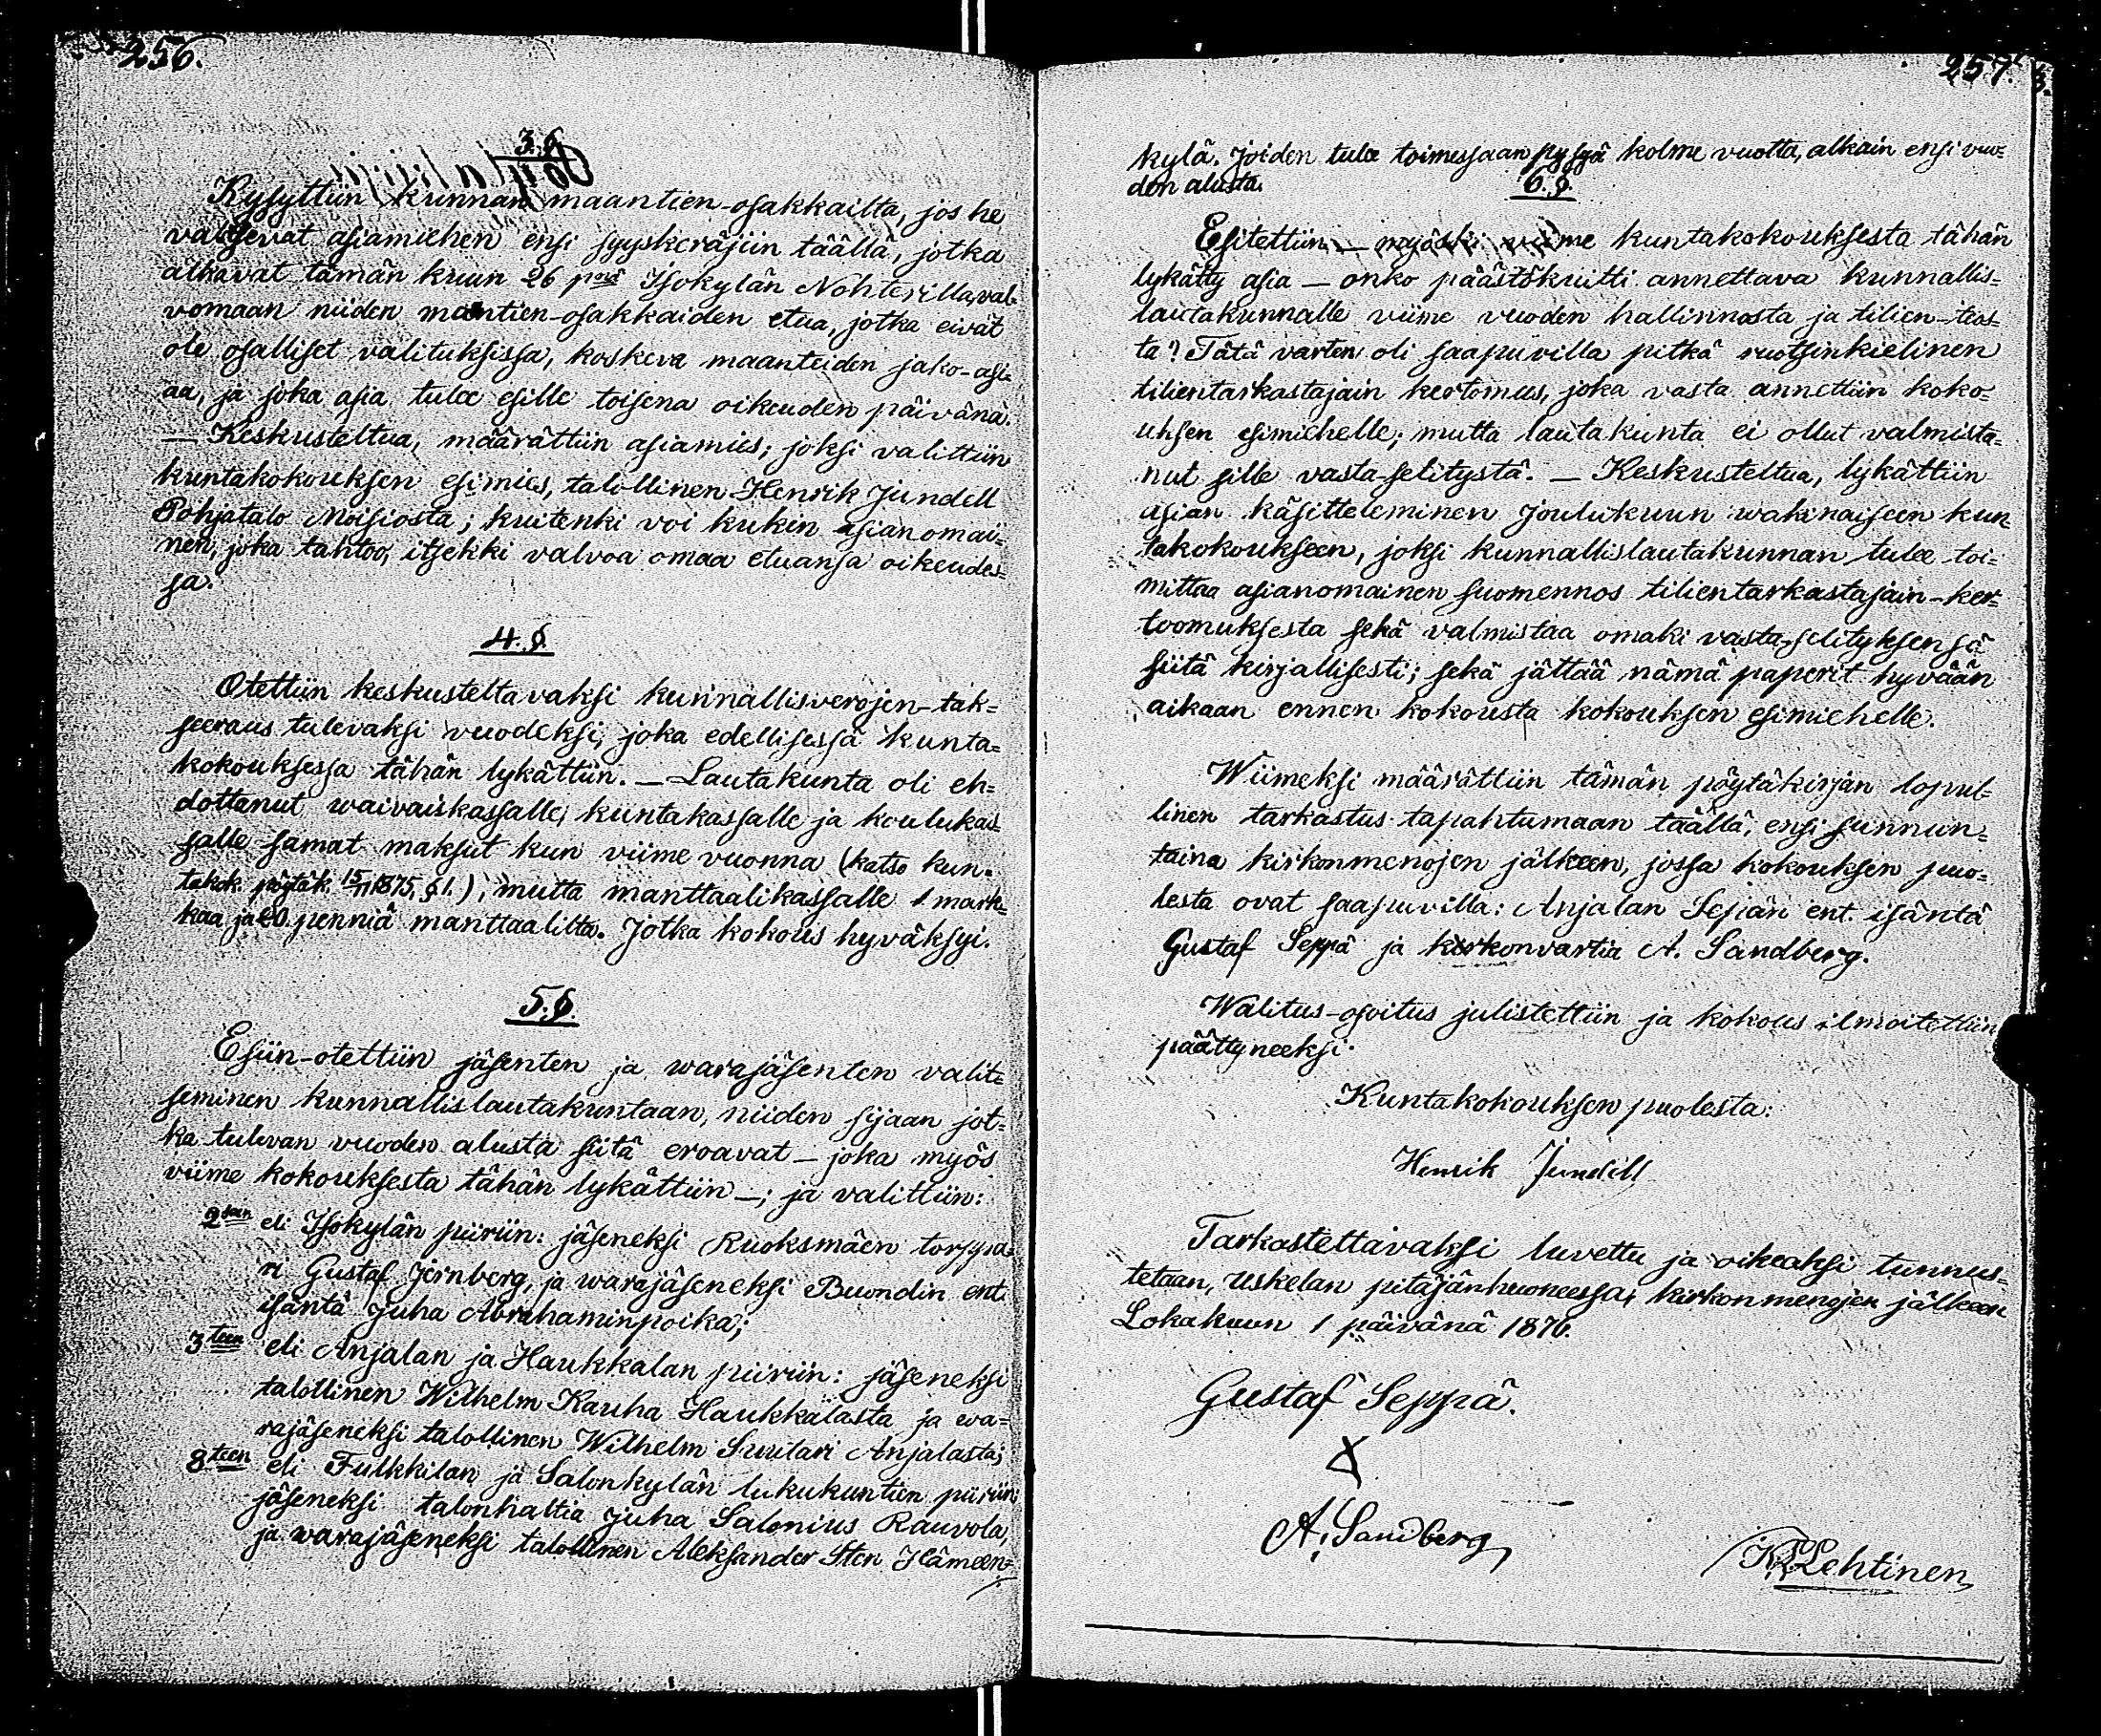 256.
3. §.
Kysyttiin kunnan maantien-osakkailta, jos he
valitsevat asiamiehen ensi syyskäräjiin täällä, jotka
alkavat tämän kuun 26 pnä Isokylän Nohterilla, val-
vomaan niiden maantien-osakkaiden etua, jotka eivät
ole osalliset valituksissa, koskeva maanteiden jako-asi-
aa, ja joka asia tulee esille toisena oikeuden päivänä.
— Keskusteltua, määrättiin asiamies; joksi valittiin
kuntakokouksen esimies, talollinen Henrik Jundell
Pohjatalo Moisiosta; kuitenki voi kukin asianomai-
nen, joka tahtoo, itsekki valvoa omaa etuansa oikeudes=
sa.
4. §.
Otettiin keskusteltavaksi kunnallisverojen-tak=
seeraus tulevaksi vuodeksi, joka edellisessä kunta=
kokouksessa tähän lykättiin. — Lautakunta oli eh=
dottanut waivaiskassalle, kuntakassalle ja koulukas-
salle samat maksut kun viime vuonna (katso kun-
takok. pöytäk. 15/11 1875, § 1.), mutta manttaalikassalle 1 mark-
kaa ja 20. penniä manttaalilta. Jotka kokous hyväksyi.
5. §.
Esiin-otettiin jäsenten ja warajäsenten valit=
seminen kunnallislautakuntaan, niiden sijaan jot=
ka tulevan vuoden alusta siitä eroavat — joka myös
viime kokouksesta tähän lykättiin —; ja valittiin:
2seen eli Isokylän piiriin: jäseneksi Ruoksmäen torppa=
ri Gustaf Jernberg, ja warajäseneksi Buondin ent.
isäntä Juha Abrahaminpoika;
3teen eli Anjalan ja Haukkalan piiriin: jäseneksi
talollinen Wilhelm Kauha Haukkalasta ja wa=
rajäseneksi talollinen Wilhelm Suutari Anjalasta;
8teen eli Fulkkilan ja Salonkylän lukukuntien piiriin
jäseneksi talonhaltia Juha Salonius Rauvola,
ja warajäseneksi talollinen Aleksander Sten Hämeen=
257.
kylä. Joiden tulee toimessaan pysyä kolme vuotta, alkain ensi vuo=
don alusta.
6. §.
Esitettiin — myöski viime kuntakokouksesta tähän
lykätty asia — onko päästökuitti annettava kunnallis=
lautakunnalle viime vuoden hallinnosta ja tilien-teos=
ta? Tätä varten oli saapuvilla pitkä ruotsinkielinen
tilientarkastajain kertomus, joka vasta annettiin koko=
uksen esimiehelle; mutta lautakunta ei ollut valmista=
nut sille vasta-selitystä. — Keskusteltua, lykättiin
asian käsitteleminen Joulukuun wakinaiseen kun-
takokoukseen, joksi kunnallislautakunnan tulee toi=
mittaa asianomainen suomennos tilientarkastajain-ker=
toomuksesta sekä valmistaa omaki vasta-selityksensä
siitä kirjallisesti; sekä jättää nämä paperit hyvään
aikaan ennen kokousta kokouksen esimiehelle.
Wiimeksi määrättiin tämän pöytäkirjan lopul-
linen tarkastus tapahtumaan täällä, ensi sunnun=
taina kirkonmenojen jälkeen, jossa kokouksen puo=
lesta ovat saapuvilla: Anjalan Sepän ent. isäntä
Gustaf Seppä ja kirkonvartia A. Sandberg.
Walitus-osoitus julistettiin ja kokous ilmoitettiin
päättyneeksi.
Kuntakokouksen puolesta:
Henrik Jundell
Tarkastettavaksi luvettu ja oikeaksi tunnus=
tetaan, Uskelan pitäjänhuoneessa, kirkonmenojen jälkeen
Lokakuun 1 päivänä 1876.
Gustaf Seppä.
X
A. Sandberg
Lehtinen